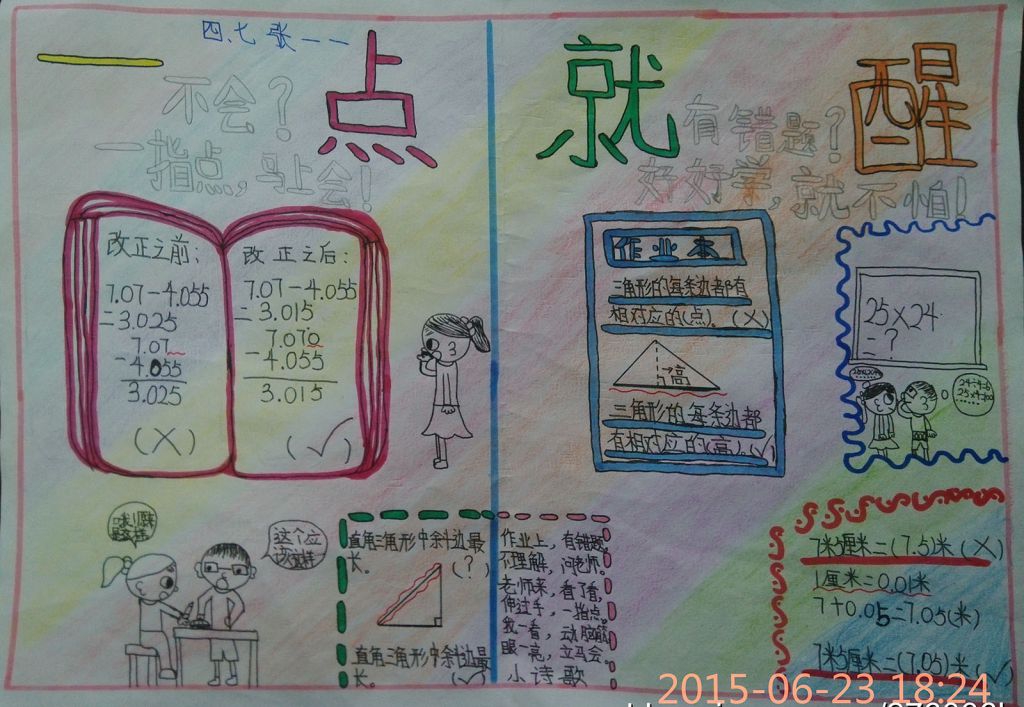 四、七 张一一
一点就醒
不会？
一指点，马上会！
有错题？
好好学，就不怕！
改正之前：
7.07－4.055
＝3.025
7.07
－4.055
3.025
（×）
改正之后：
7.07－4.055
＝3.015
7.070
－4.055
3.015
（√）
作业本
三角形的每条边都有
相对应的（点）。（×）
高
三角形的每条边都
有相对应的（高）。（√）
25×24
＝？
24÷4=6
这个应
该这样
直角三角形中斜边最
长。（？）
直角三角形中斜边最
长。（√）
作业上，有错题，
不理解，问老师。
老师来，看了看，
伸过手，一指点。
我一看，动脑筋，
眼一亮，立马会
小诗歌
7米5厘米＝（7.5）米（×）
1厘米＝0.01米
7＋0.05＝7.05（米）
7米5厘米＝（7.05）米（√）
2015-06-23 18:24